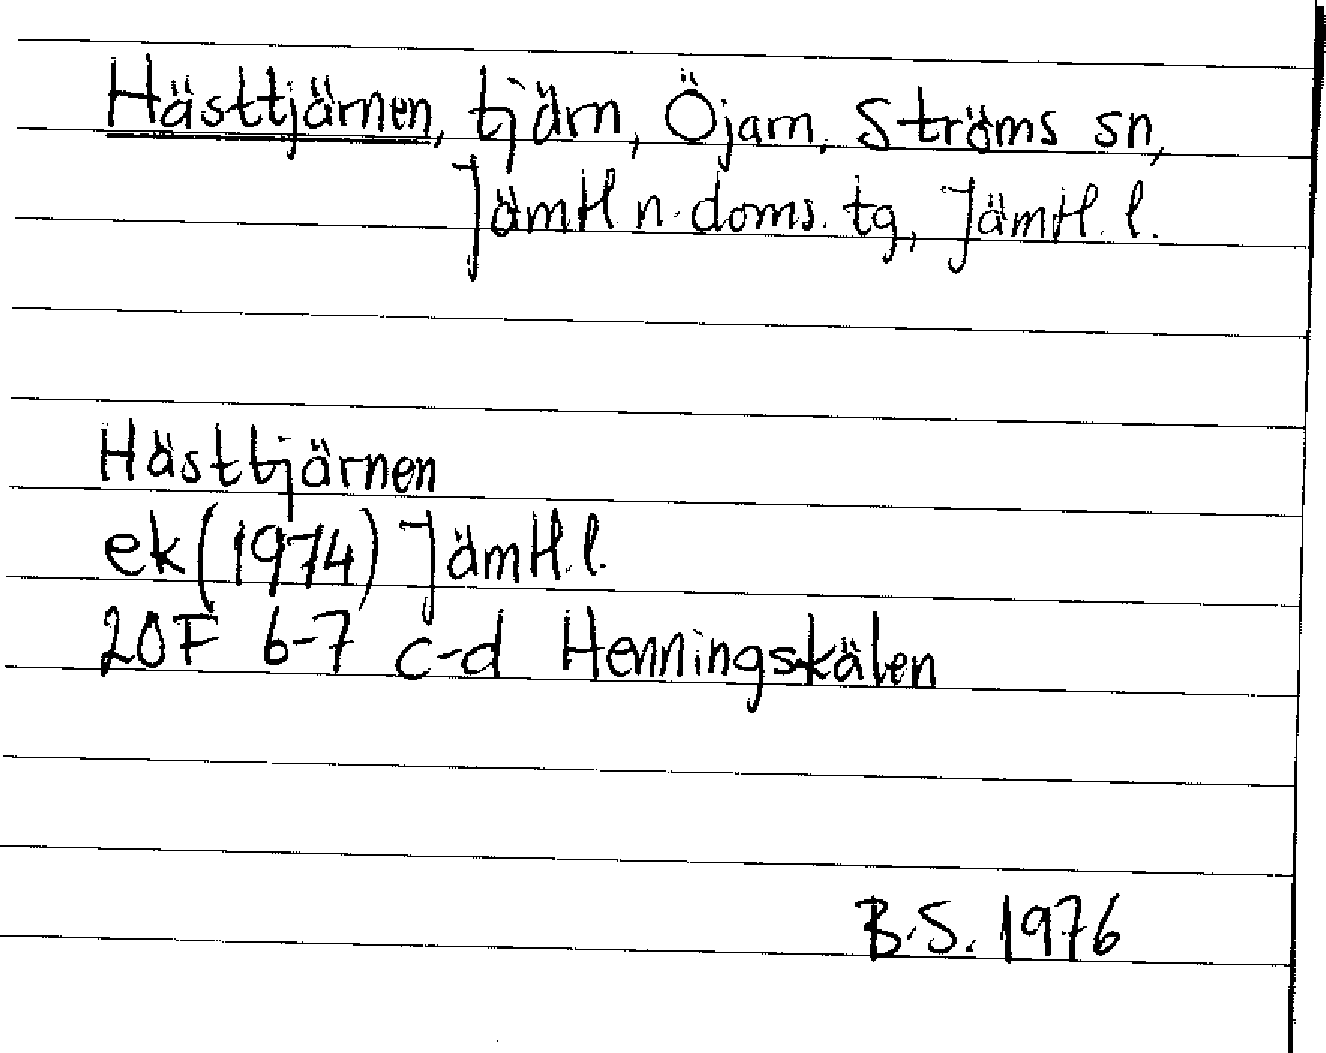 Hästtjärnen, tjärn, Öjarn, Ströms sn,
Jämtl. n. doms. tg, Jämtl. l.
Hästtjärnen
ek (1974) Jämtl. l.
20F 6-7 c-d Henningskälen
B.S. 1976